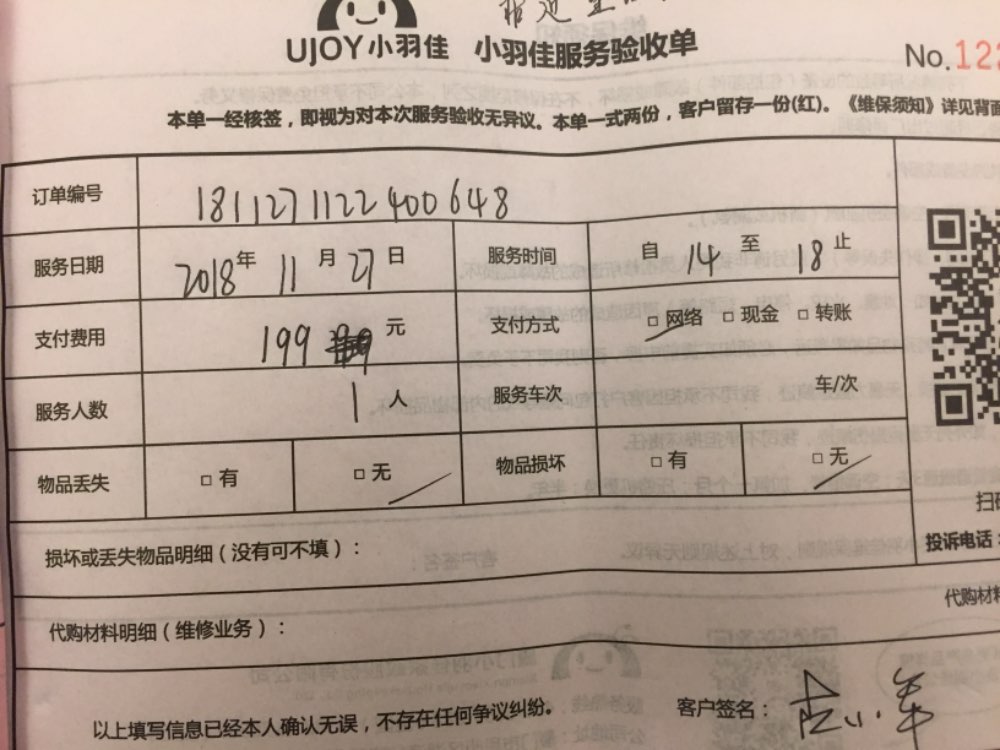 UJOY小羽佳 小羽佳服务验收单
No.122
本单一经核签，即视为对本次服务验收无异议。本单一式两份，客户留存一份(红)。《维保须知》详见背面
订单编号 1811271122400648
服务日期 2018年 11月 27日 服务时间 自 14 至 18 止
支付费用 199 元 支付方式 □网络 □现金 □转账
服务人数 1人 服务车次 车/次
物品丢失 □有 □无 物品损坏 □有 □无
扫
损坏或丢失物品明细（没有可不填）：
投诉电话：
代购材料明细（维修业务）：
代购材
以上填写信息已经本人确认无误，不存在任何争议纠纷。 客户签名：